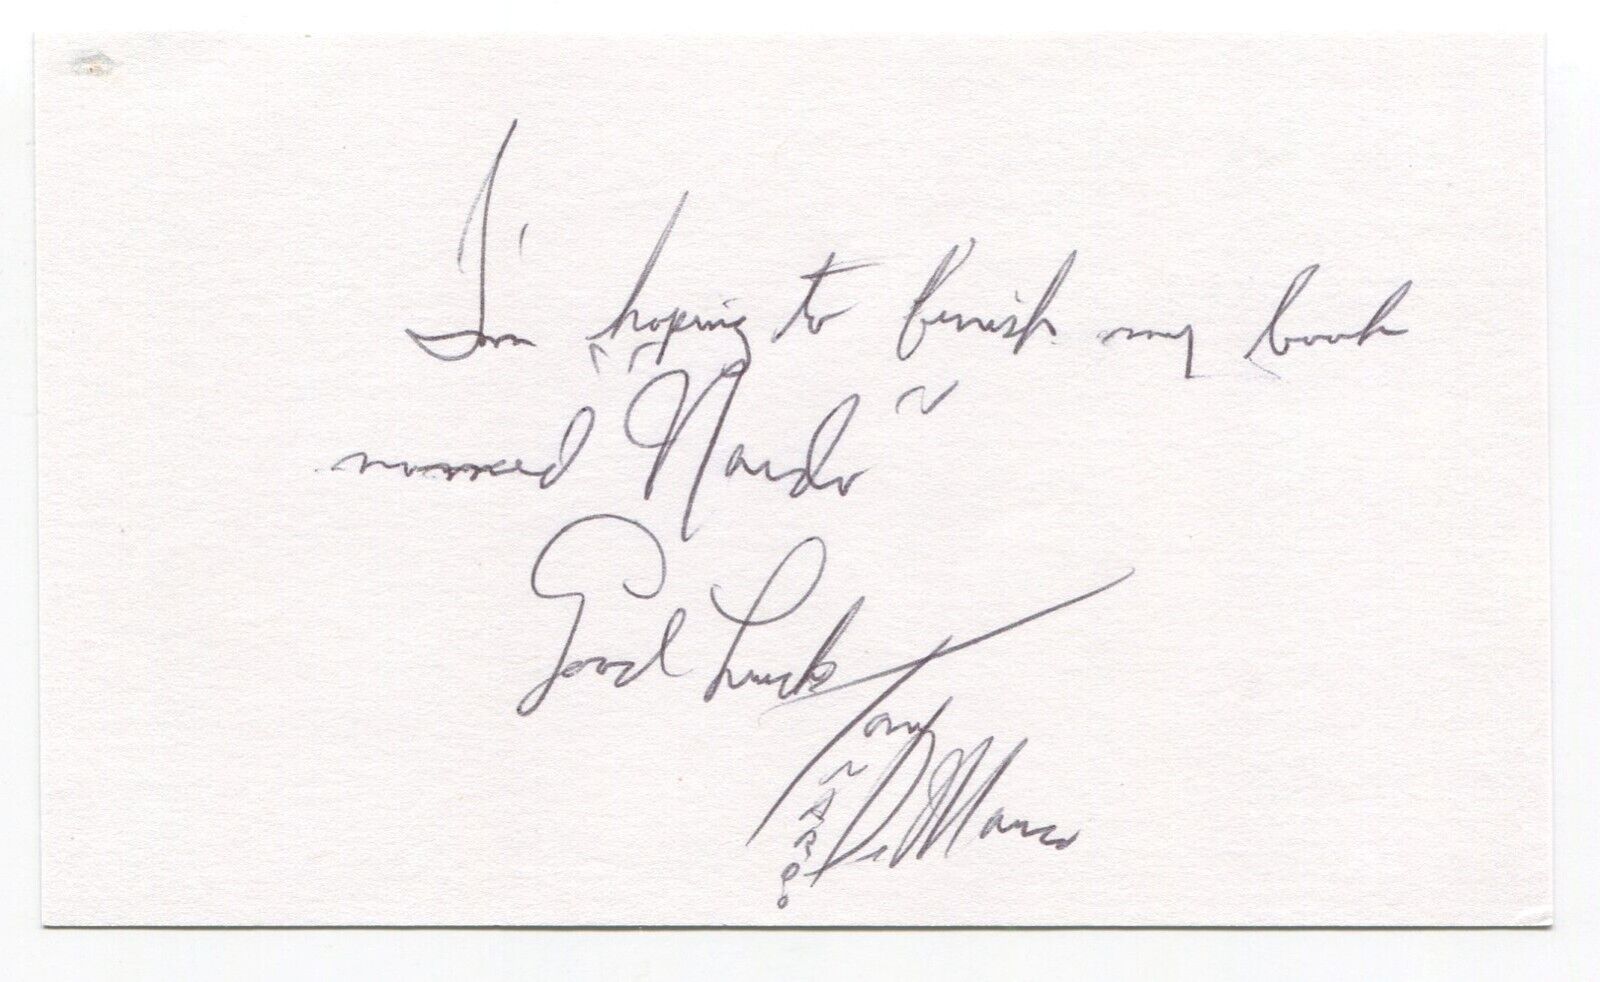 I'm hoping to finish my book
named "Nardo"
Good Luck
Tony
DeMarco
NARDO